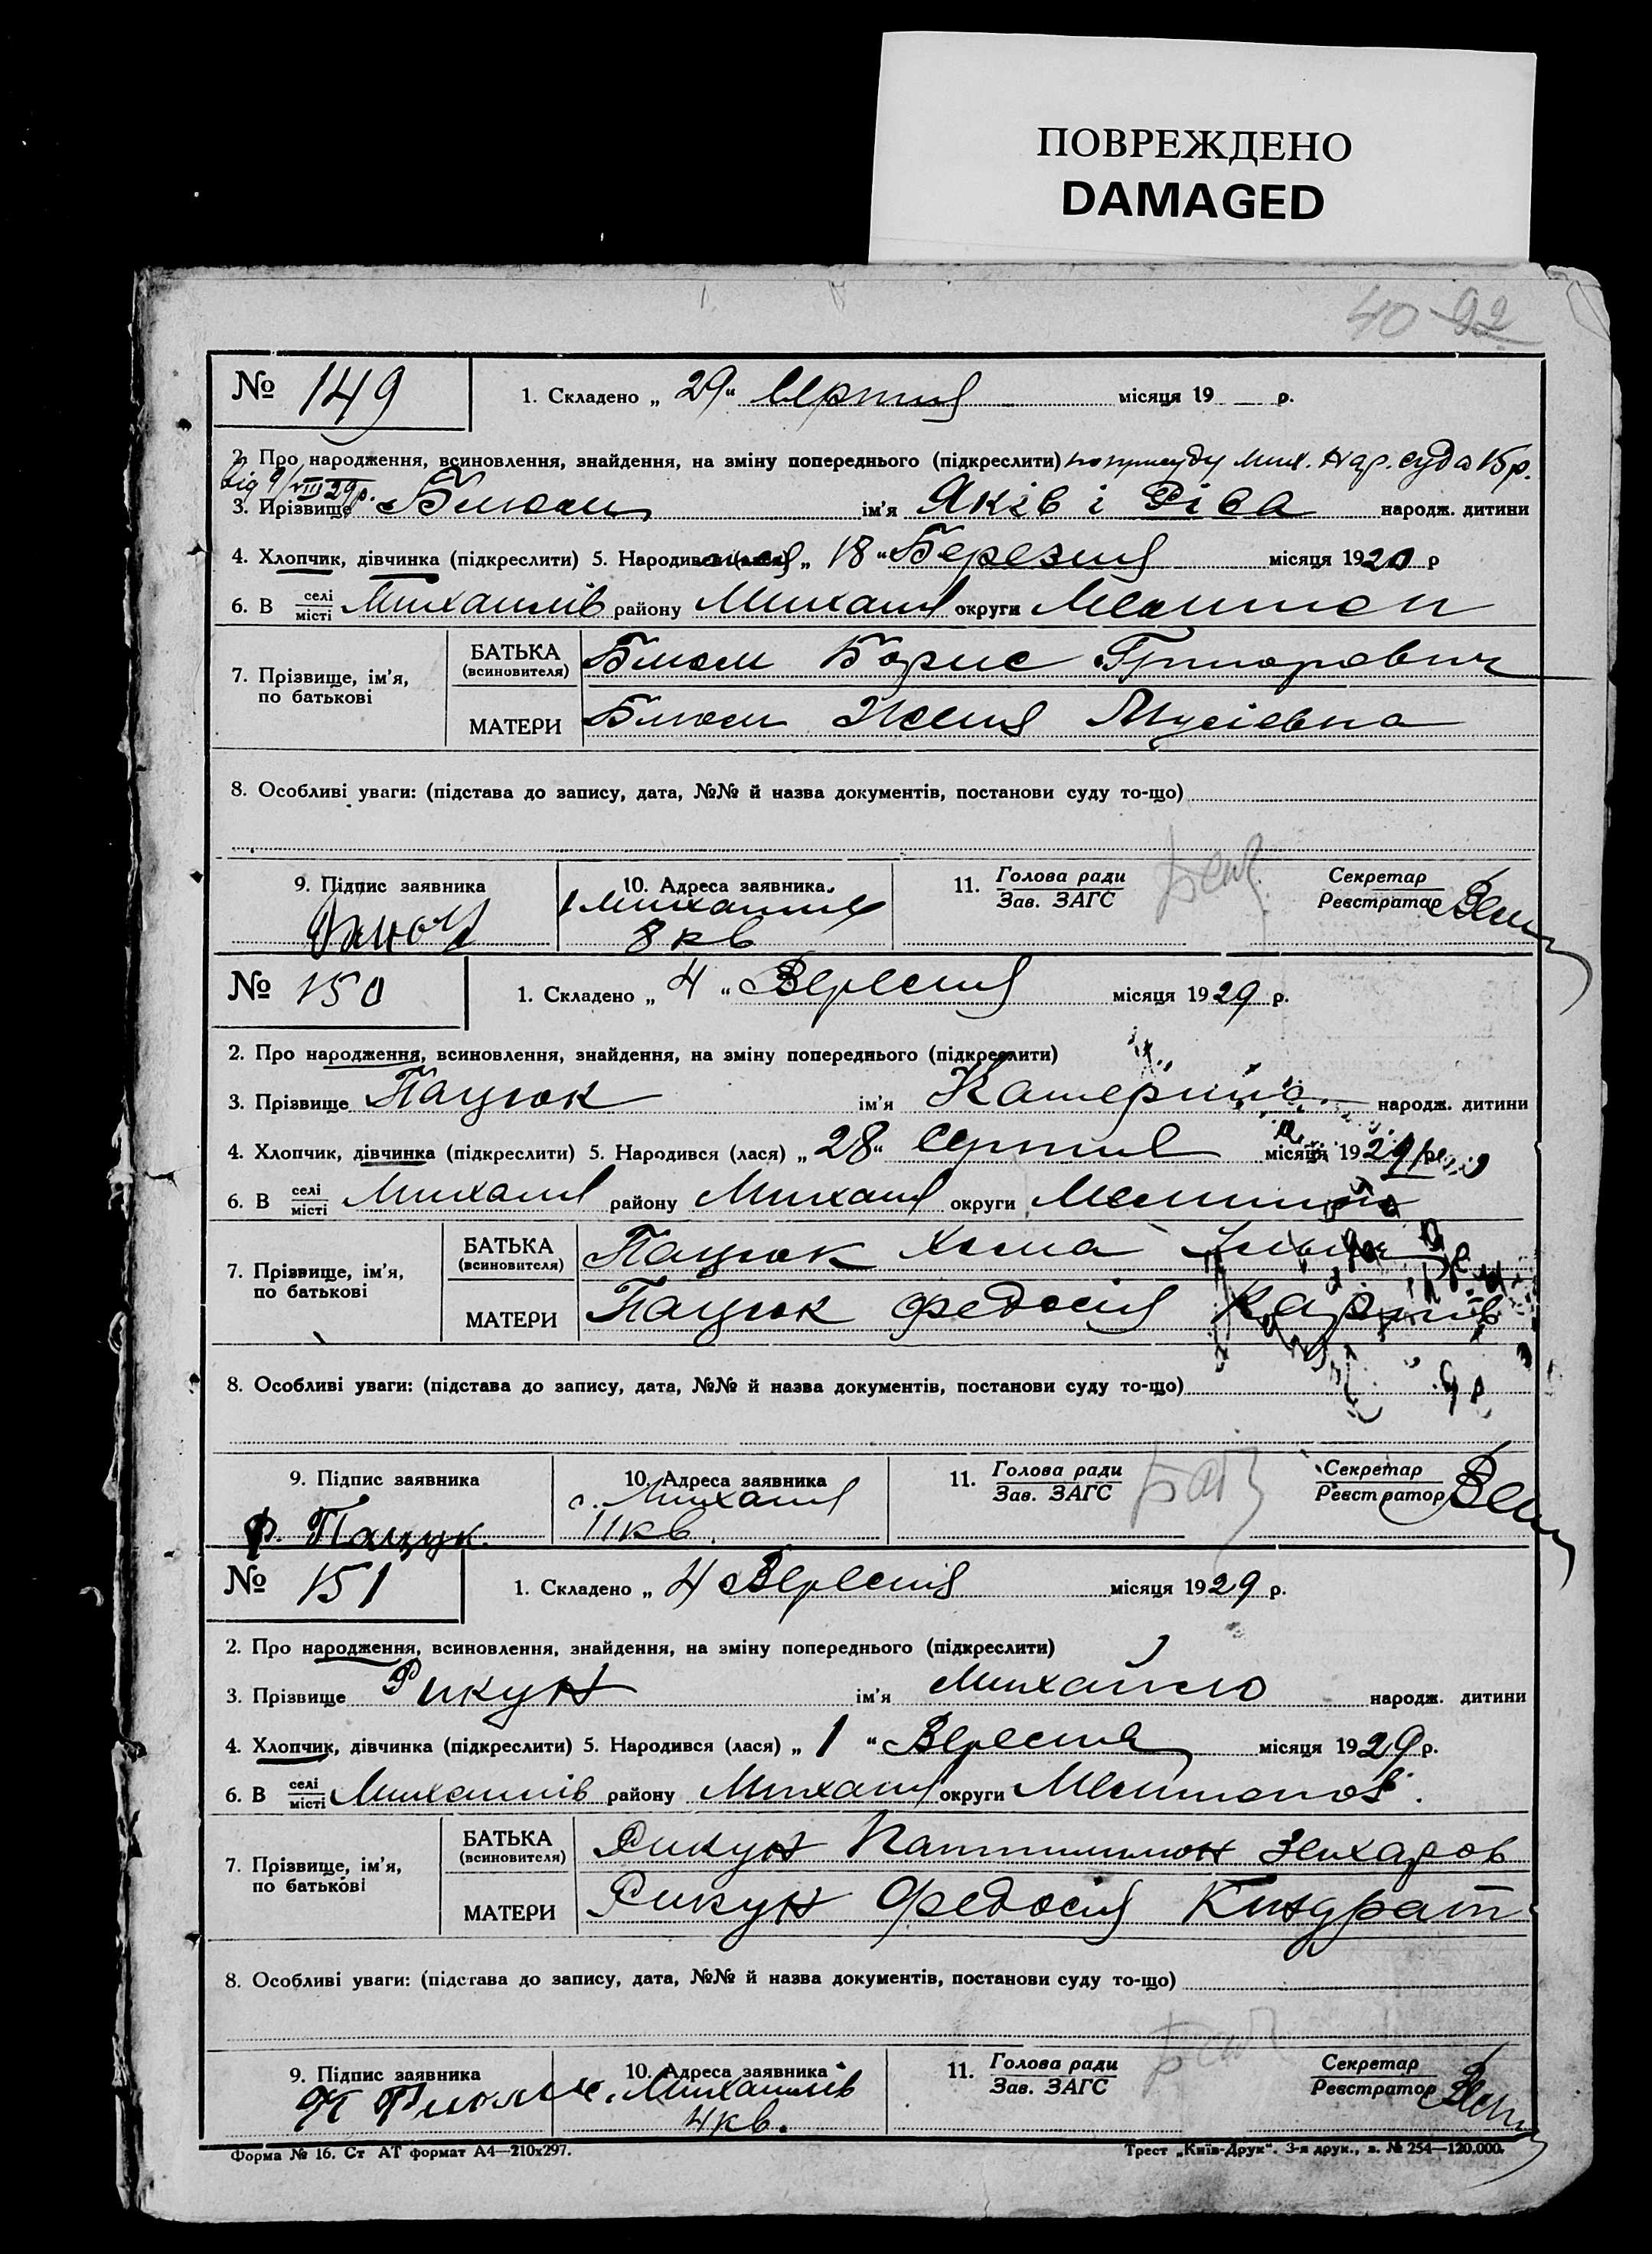 ПОВРЕЖДЕНО
DAMAGED
40-92
№ 149
1. Складено „ 29 “ Серпня місяця 19 р.
2. Про народження, всиновлення, знайдення, на зміну попереднього (підкреслити) по присуду Мих. Нар. суда 15 р.
від 9/VIII 29 р.
3. Прізвище Блюм ім'я Яків і Ріва народж. дитини
4. Хлопчик, дівчинка (підкреслити) 5. Народився (лася) „ 18 “ Березня місяця 1920 р
6. В селі місті Михайлів району Михайл округи Мелитоп
7. Прізвище, ім'я, по батькові
БАТЬКА (всиновителя) Блюм Борис Григорович
МАТЕРИ Блюм Женя Мусієвна
8. Особливі уваги: (підстава до запису, дата, №№ й назва документів, постанови суду то-що)
9. Підпис заявника
10. Адреса заявника
11. Голова ради Зав. ЗАГС
Секретар Реєстратор
Блюм
Михайлів
8 кв
№ 150
1. Складено „ 4 “ Вересня місяця 1929 р.
2. Про народження, всиновлення, знайдення, на зміну попереднього (підкреслити)
3. Прізвище Пацюк ім'я Катерина народж. дитини
4. Хлопчик, дівчинка (підкреслити) 5. Народився (лася) „ 28 “ Серпня місяця 1929 р
6. В селі місті Михайл району Михайл округи Мелитоп
7. Прізвище, ім'я, по батькові
БАТЬКА (всиновителя) Пацюк Хома
МАТЕРИ Пацюк Федосія
8. Особливі уваги: (підстава до запису, дата, №№ й назва документів, постанови суду то-що)
9. Підпис заявника
10. Адреса заявника
11. Голова ради Зав. ЗАГС
Секретар Реєстратор
Ф. Пацук.
с. Михайл
11 кв
№ 151
1. Складено „ 4 Вересня місяця 1929 р.
2. Про народження, всиновлення, знайдення, на зміну попереднього (підкреслити)
3. Прізвище Рикун ім'я Михайло народж. дитини
4. Хлопчик, дівчинка (підкреслити) 5. Народився (лася) „ 1 “ Вересня місяця 1929 р.
6. В селі місті Михайлів району Михайл округи Мелитопол.
7. Прізвище, ім'я, по батькові
БАТЬКА (всиновителя) Рикун Пантилимон Захаров
МАТЕРИ Рикун Федосія Кіндрат
8. Особливі уваги: (підстава до запису, дата, №№ й назва документів, постанови суду то-що)
9. Підпис заявника
10. Адреса заявника
11. Голова ради Зав. ЗАГС
Секретар Реєстратор
с. Михайлів
4 кв.
Форма № 16. Ст АТ формат А4—210х297.
Трест „Київ-Друк“. 3-я друк., з. № 254—120.000.